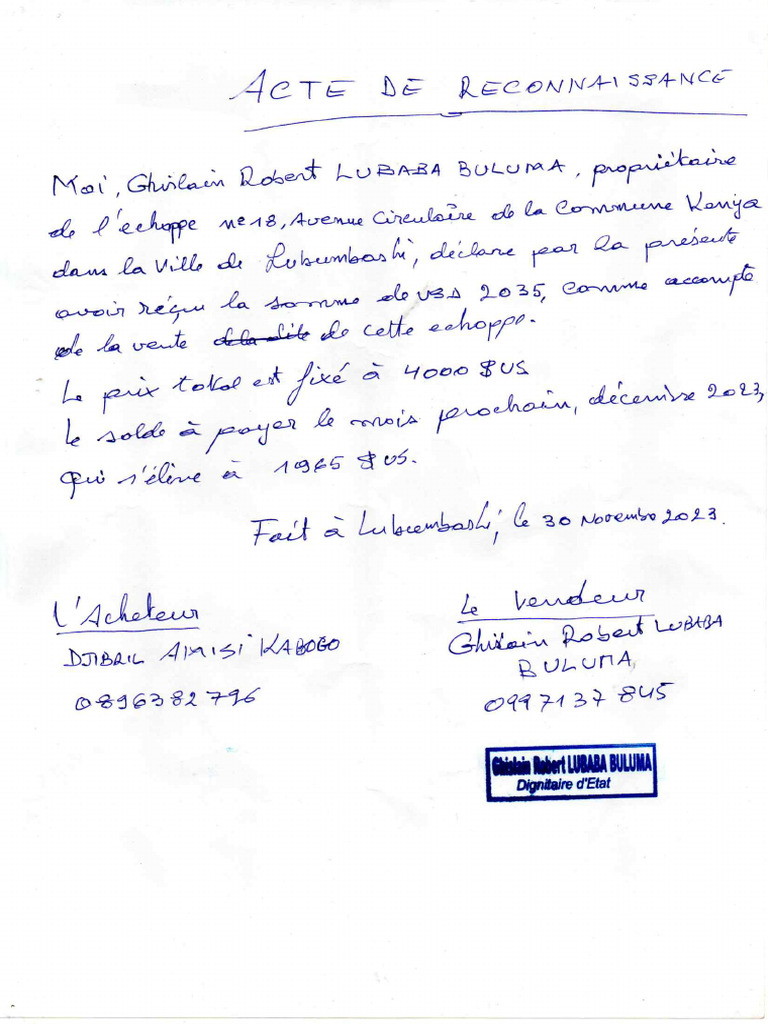 ACTE DE RECONNAISSANCE
Moi, Ghislain Robert LUBABA BULUMA, propriétaire
de l'échoppe n° 18, Avenue Circulaire de la Commune Kenya
dans la Ville de Lubumbashi, déclare par la présente
avoir réçu la somme de USD 2035, comme accompte
de la vente de la dite de cette echoppe.
Le prix total est fixé à 4000 $US
Le solde à payer le mois prochain, décembre 2023,
qui s'élève à 1965 $US.
Fait à Lubumbashi, le 30 Novembre 2023.
L'Acheteur
DJIBRIL AMISI KABOGO
0896382796
Le Vendeur
Ghislain Robert LUBABA
BULUMA
0997137845
Ghislain Robert LUBABA BULUMA
Dignitaire d'Etat